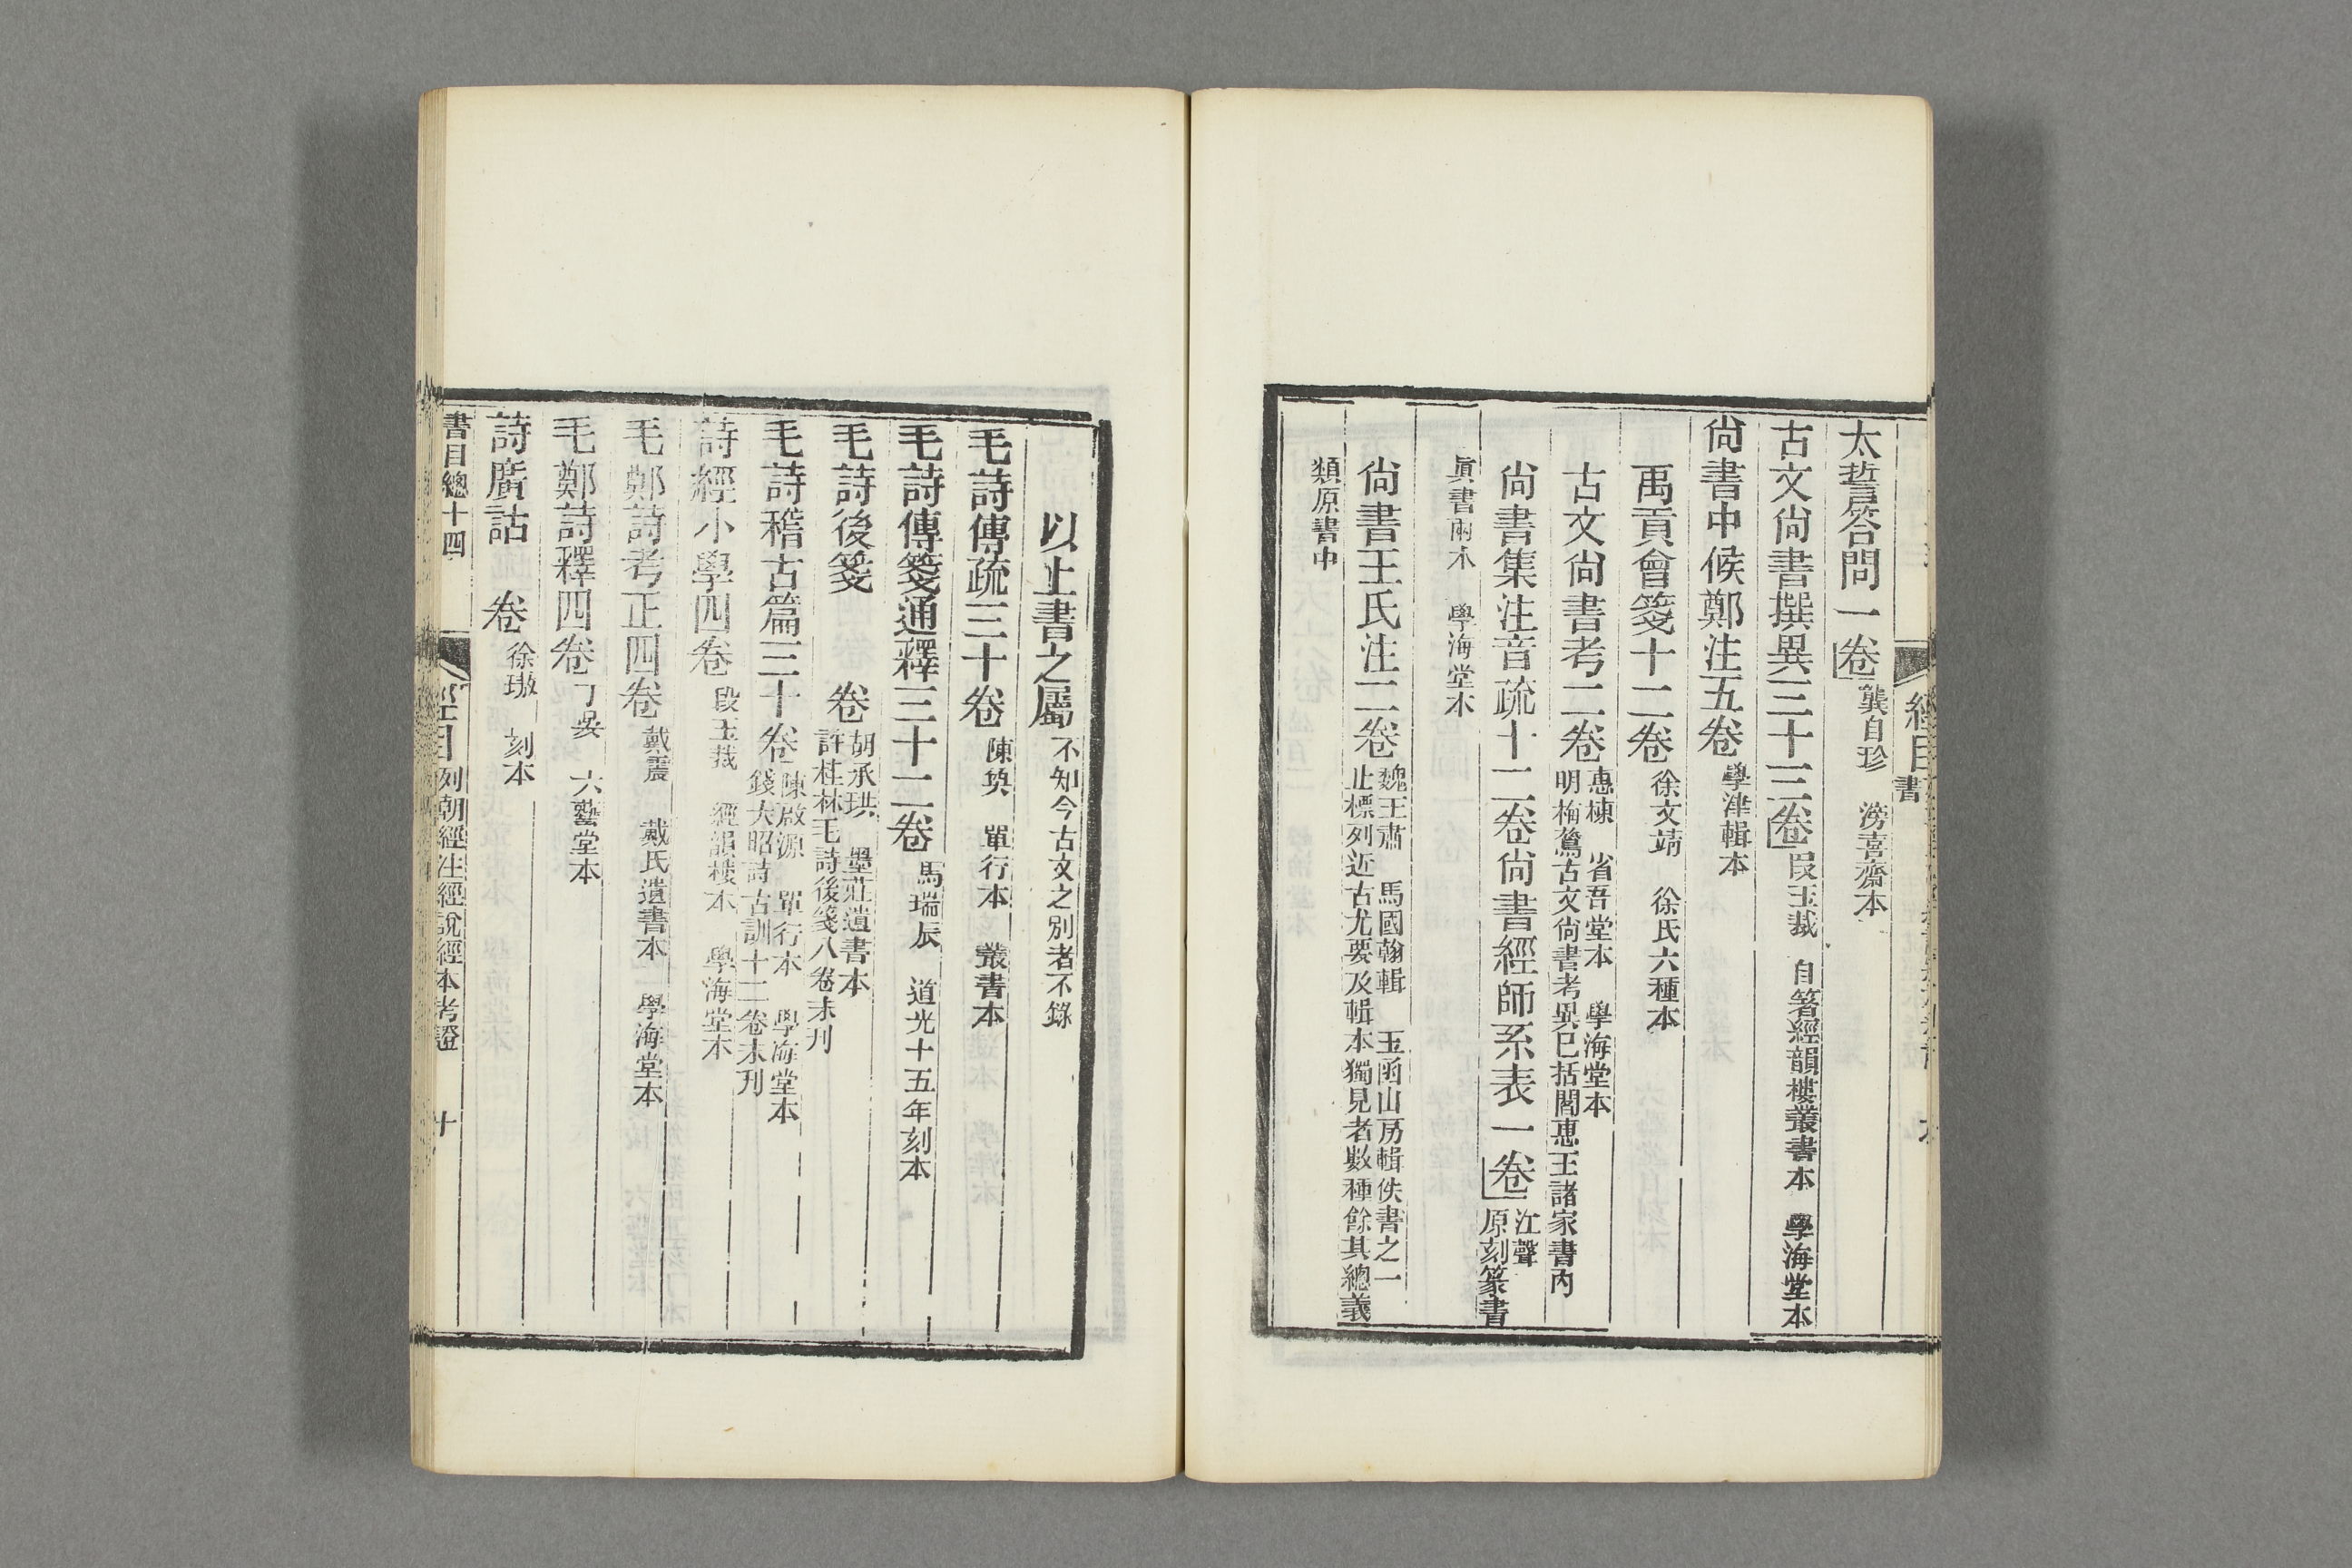 經目
書
太誓答問一卷 龔自珍 滂喜齋本
古文尙書撰異三十三卷 段玉裁 自箸經韻樓叢書本 學海堂本
尙書中候鄭注五卷 學津輯本
禹貢會箋十二卷 徐文靖 徐氏六種本
古文尙書考二卷 惠棟 省吾堂本 學海堂本
明梅鷟古文尙書考異已括閻惠王諸家書內
尙書集注音疏十二卷尙書經師系表一卷 江聲
原刻篆書
眞書兩本 學海堂本
尙書王氏注二卷 魏王肅 馬國翰輯 玉函山房輯佚書之一
止標列近古尤要及輯本獨見者數種餘其總義
類原書中
以上書之屬 不知今古文之別者不錄
毛詩傳疏三十卷 陳奐 單行本 叢書本
毛詩傳箋通釋三十二卷 馬瑞辰 道光十五年刻本
毛詩後箋 卷 胡承珙 墨莊遺書本
許桂林毛詩後箋八卷未刊
毛詩稽古篇三十卷 陳啟源 單行本 學海堂本
錢大昭詩古訓十二卷未刊
詩經小學四卷 段玉裁 經韻樓本 學海堂本
毛鄭詩考正四卷 戴震 戴氏遺書本 學海堂本
毛鄭詩釋四卷 丁晏 六藝堂本
詩廣詁 卷 徐璈 刻本
書目總十四 經目 列朝經注經說經本考證 十